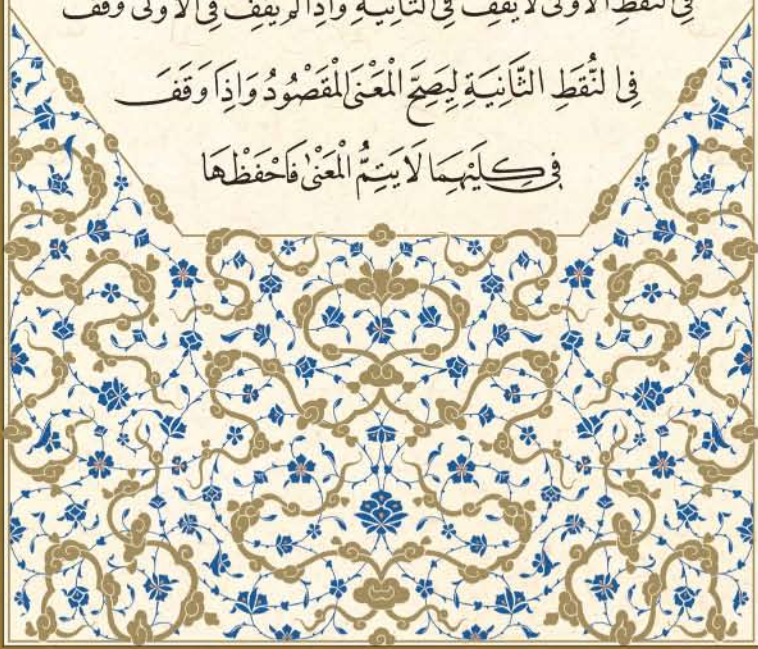 فِى النُّقَطِ الْاُولٰى لَا يَقِفُ فِى الثَّانِيَةِ وَاِذَا لَمْ يَقِفْ فِى الْاُولٰى وَقَفَ
فِى النُّقَطِ الثَّانِيَةِ لِيَصِحَّ الْمَعْنَى الْمَقْصُودُ وَاِذَا وَقَفَ
فِى كِلَيْهِمَا لَا يَتِمُّ الْمَعْنٰى فَاحْفَظْهَا